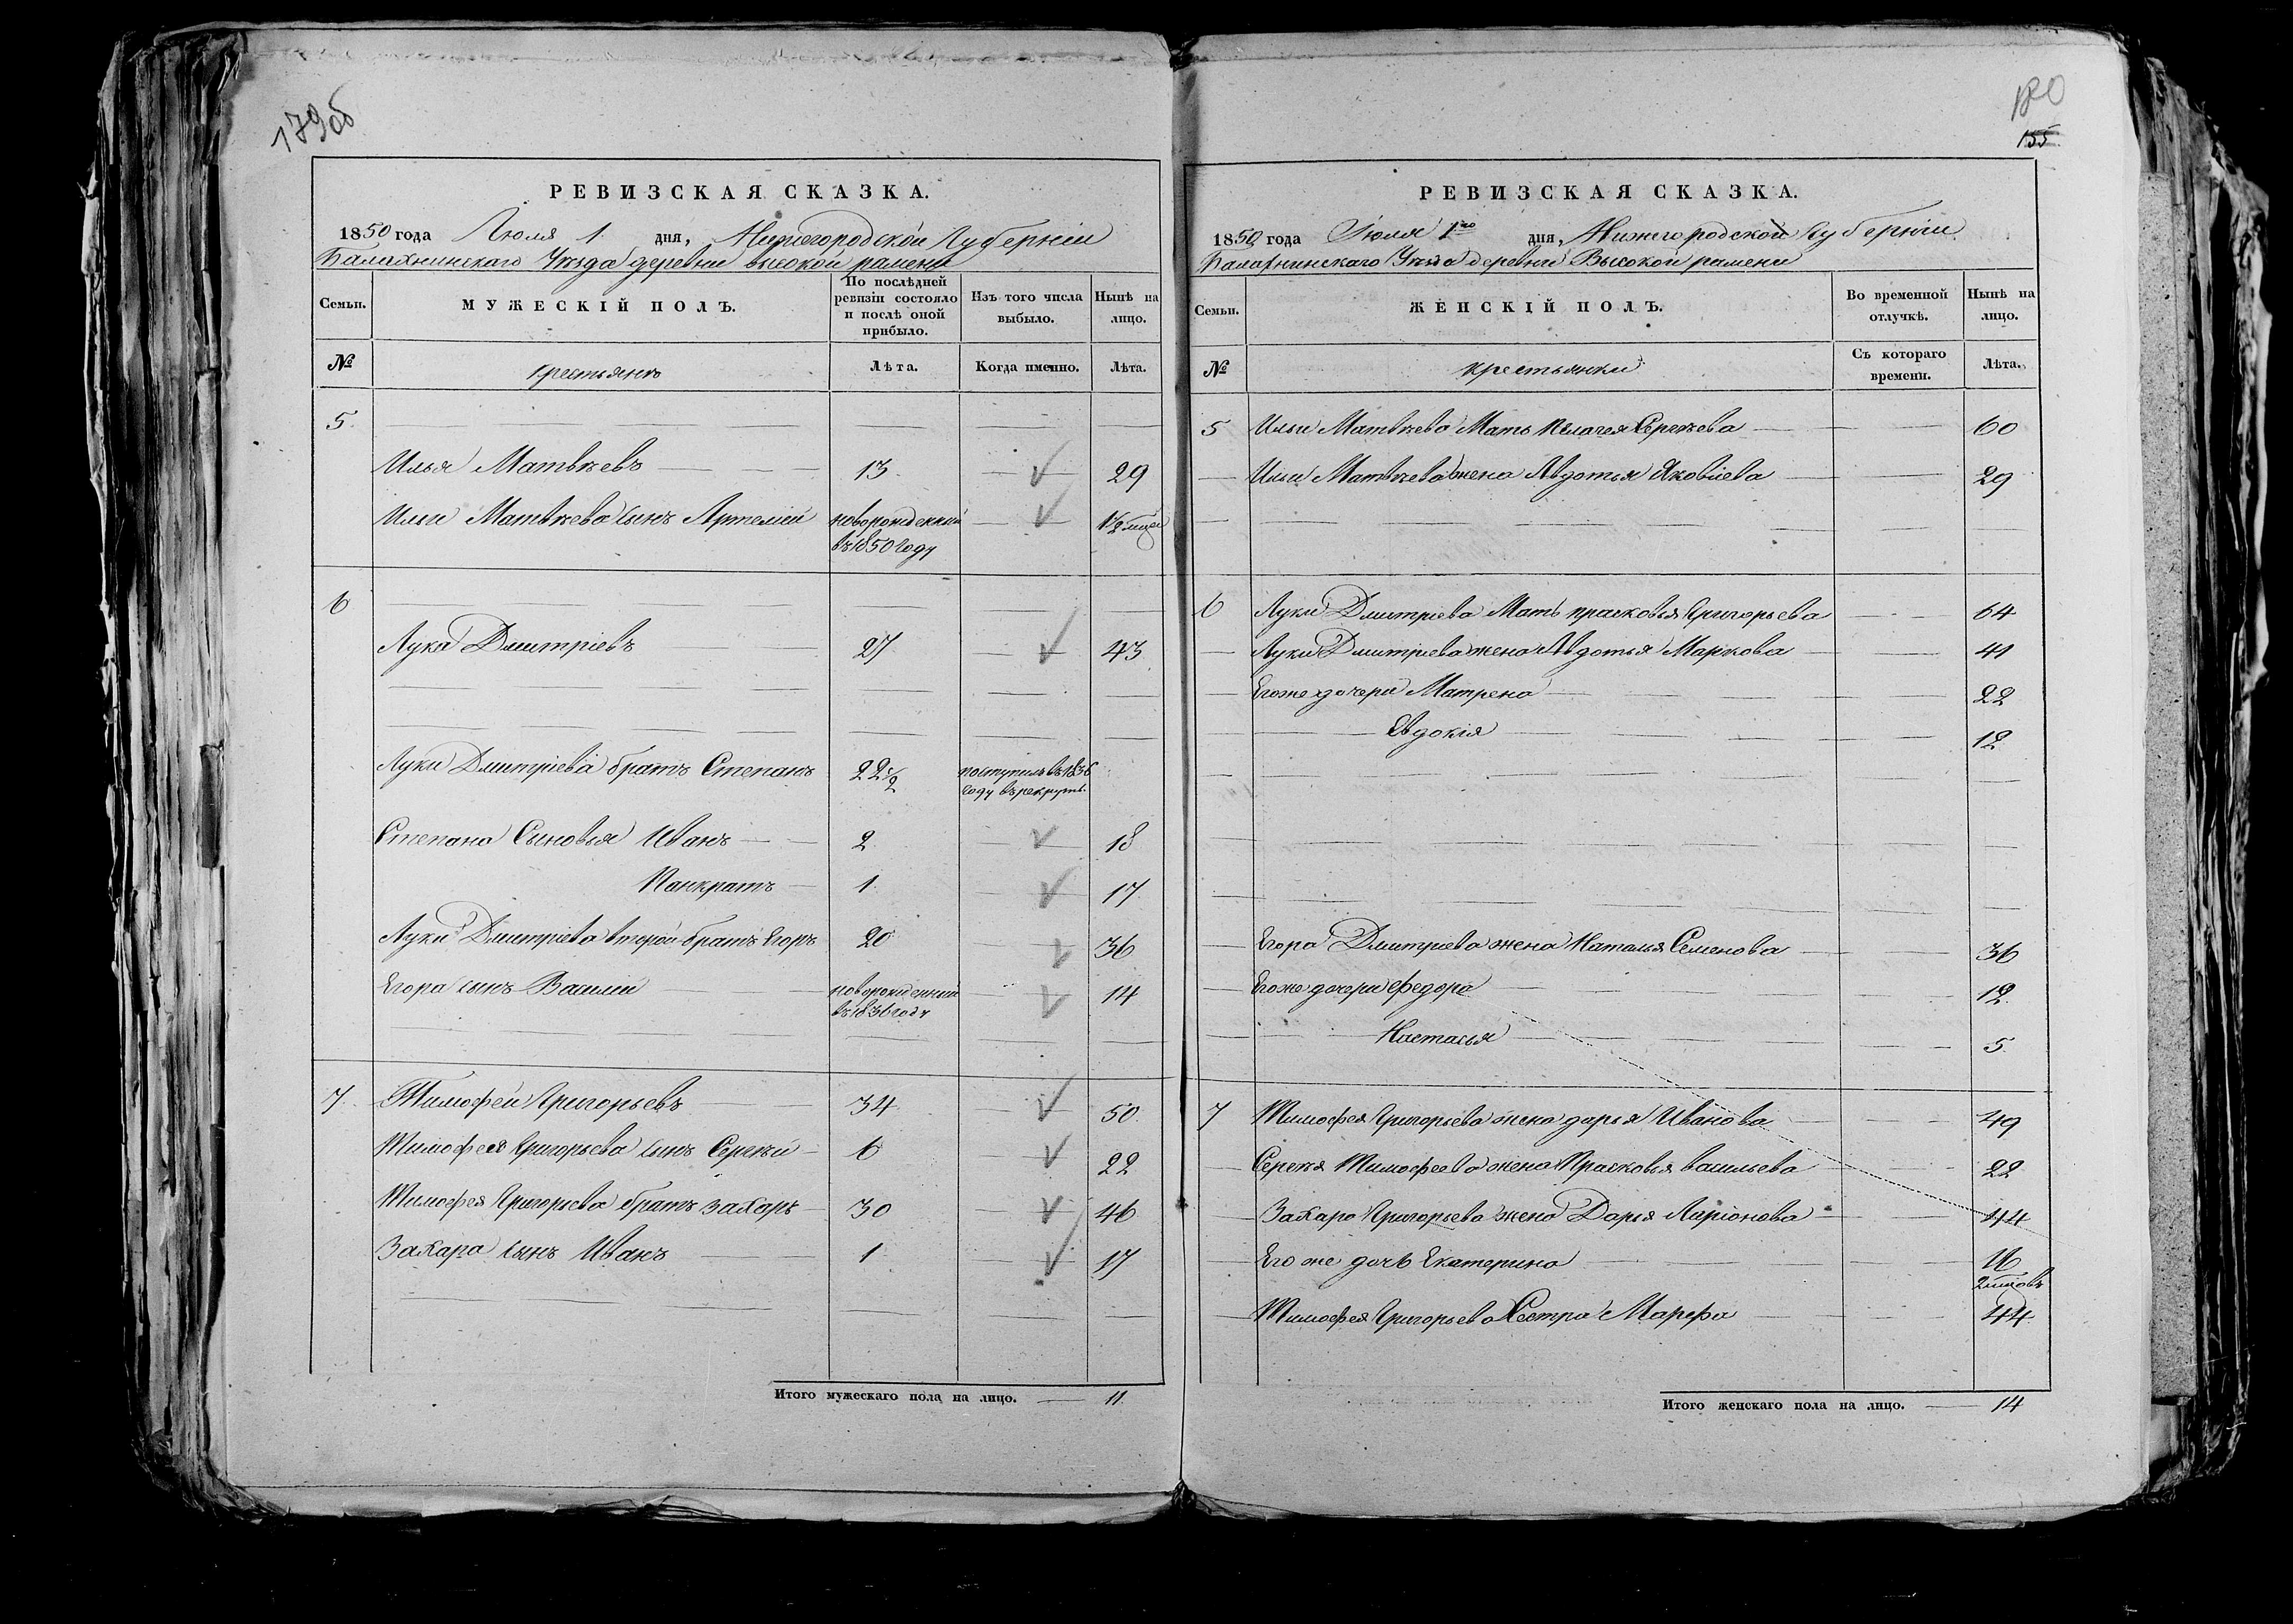 179об
РЕВИЗСКАЯ СКАЗКА.
1850 года Июля 1 дня, Нижегородской Губернiи
Балахнинскаго Уѣзда деревни высокой рамени
Семьи. МУЖЕСКIЙ ПОЛЪ. По послѣдней ревизiи состояло и послѣ оной прибыло. Изъ того числа выбыло. Нынѣ на лицо.
№ крестьянъ Лѣта. Когда именно. Лѣта.
5
Илья Матвѣевъ 13 29
Ильи Матвѣева сынъ Артемiй новорожденный въ 1850 году 1/2 мцеи
6
Лука Дмитрiевъ 27 43
Луки Дмитрiева братъ Степанъ 22 1/2 поступилъ въ 1836 году въ рекруты.
Степана Сыновья Иванъ 2 18
Панкратъ 1 17
Луки Дмитрiева второй братъ Егоръ 20 36
Егора сынъ Василiи новорожденный въ 1836 году 14
7 Тимофей Григорьевъ 34 50
Тимофея Григорьева сынъ Сергѣй 6 22
Тимофея Григорьева братъ захаръ 30 46
Захара сынъ Иванъ 1 17
Итого мужескаго пола на лицо. 11
180
155
РЕВИЗСКАЯ СКАЗКА.
1850 года Iюля 1го дня, Нижегородской Губернiи
Балахнинскаго Уѣзда деревни Высокой рамени
Семьи. ЖЕНСКIЙ ПОЛЪ. Во временной отлучкѣ. Нынѣ на лицо.
№ крестьянки Съ котораго времени. Лѣта.
5 Ильи Матвѣева Мать Пелагея Сергѣева 60
Ильи Матвѣева жена Авдотья Яковлева 29
6 Луки Дмитрiева Мать прасковья Григорьева 64
Луки Дмитрiева жена Авдотья Маркова 41
Егоже дочери Матрена 22
Евдокiя 12
Егора Дмитрiева жена Наталья Семенова 36
Егоже дочери Федора 12
Настасья 5
7 Тимофея Григорьева жена дарья Иванова 49
Сергея Тимофеева жена Прасковья васильева 22
Захара Григорьева жена Дарья Ларiонова 44
Его же дочь Екатерина 16
Тимофея Григорьева Сестра Марфа 44
Итого женскаго пола на лицо. 14